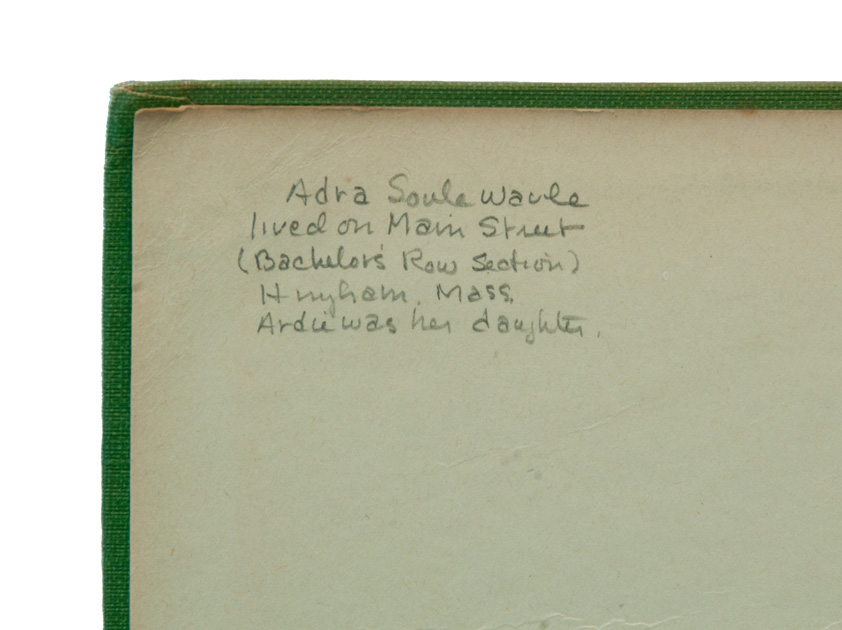 Adra Soule Wavle
lived on Main Street
(Bachelor's Row Section)
Hingham, Mass.
Ardie was her daughter.